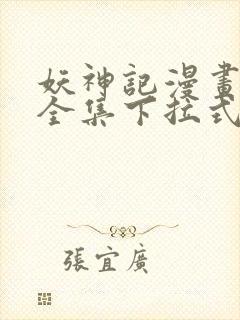 妖神記漫畫
全集下拉式
張宜廣